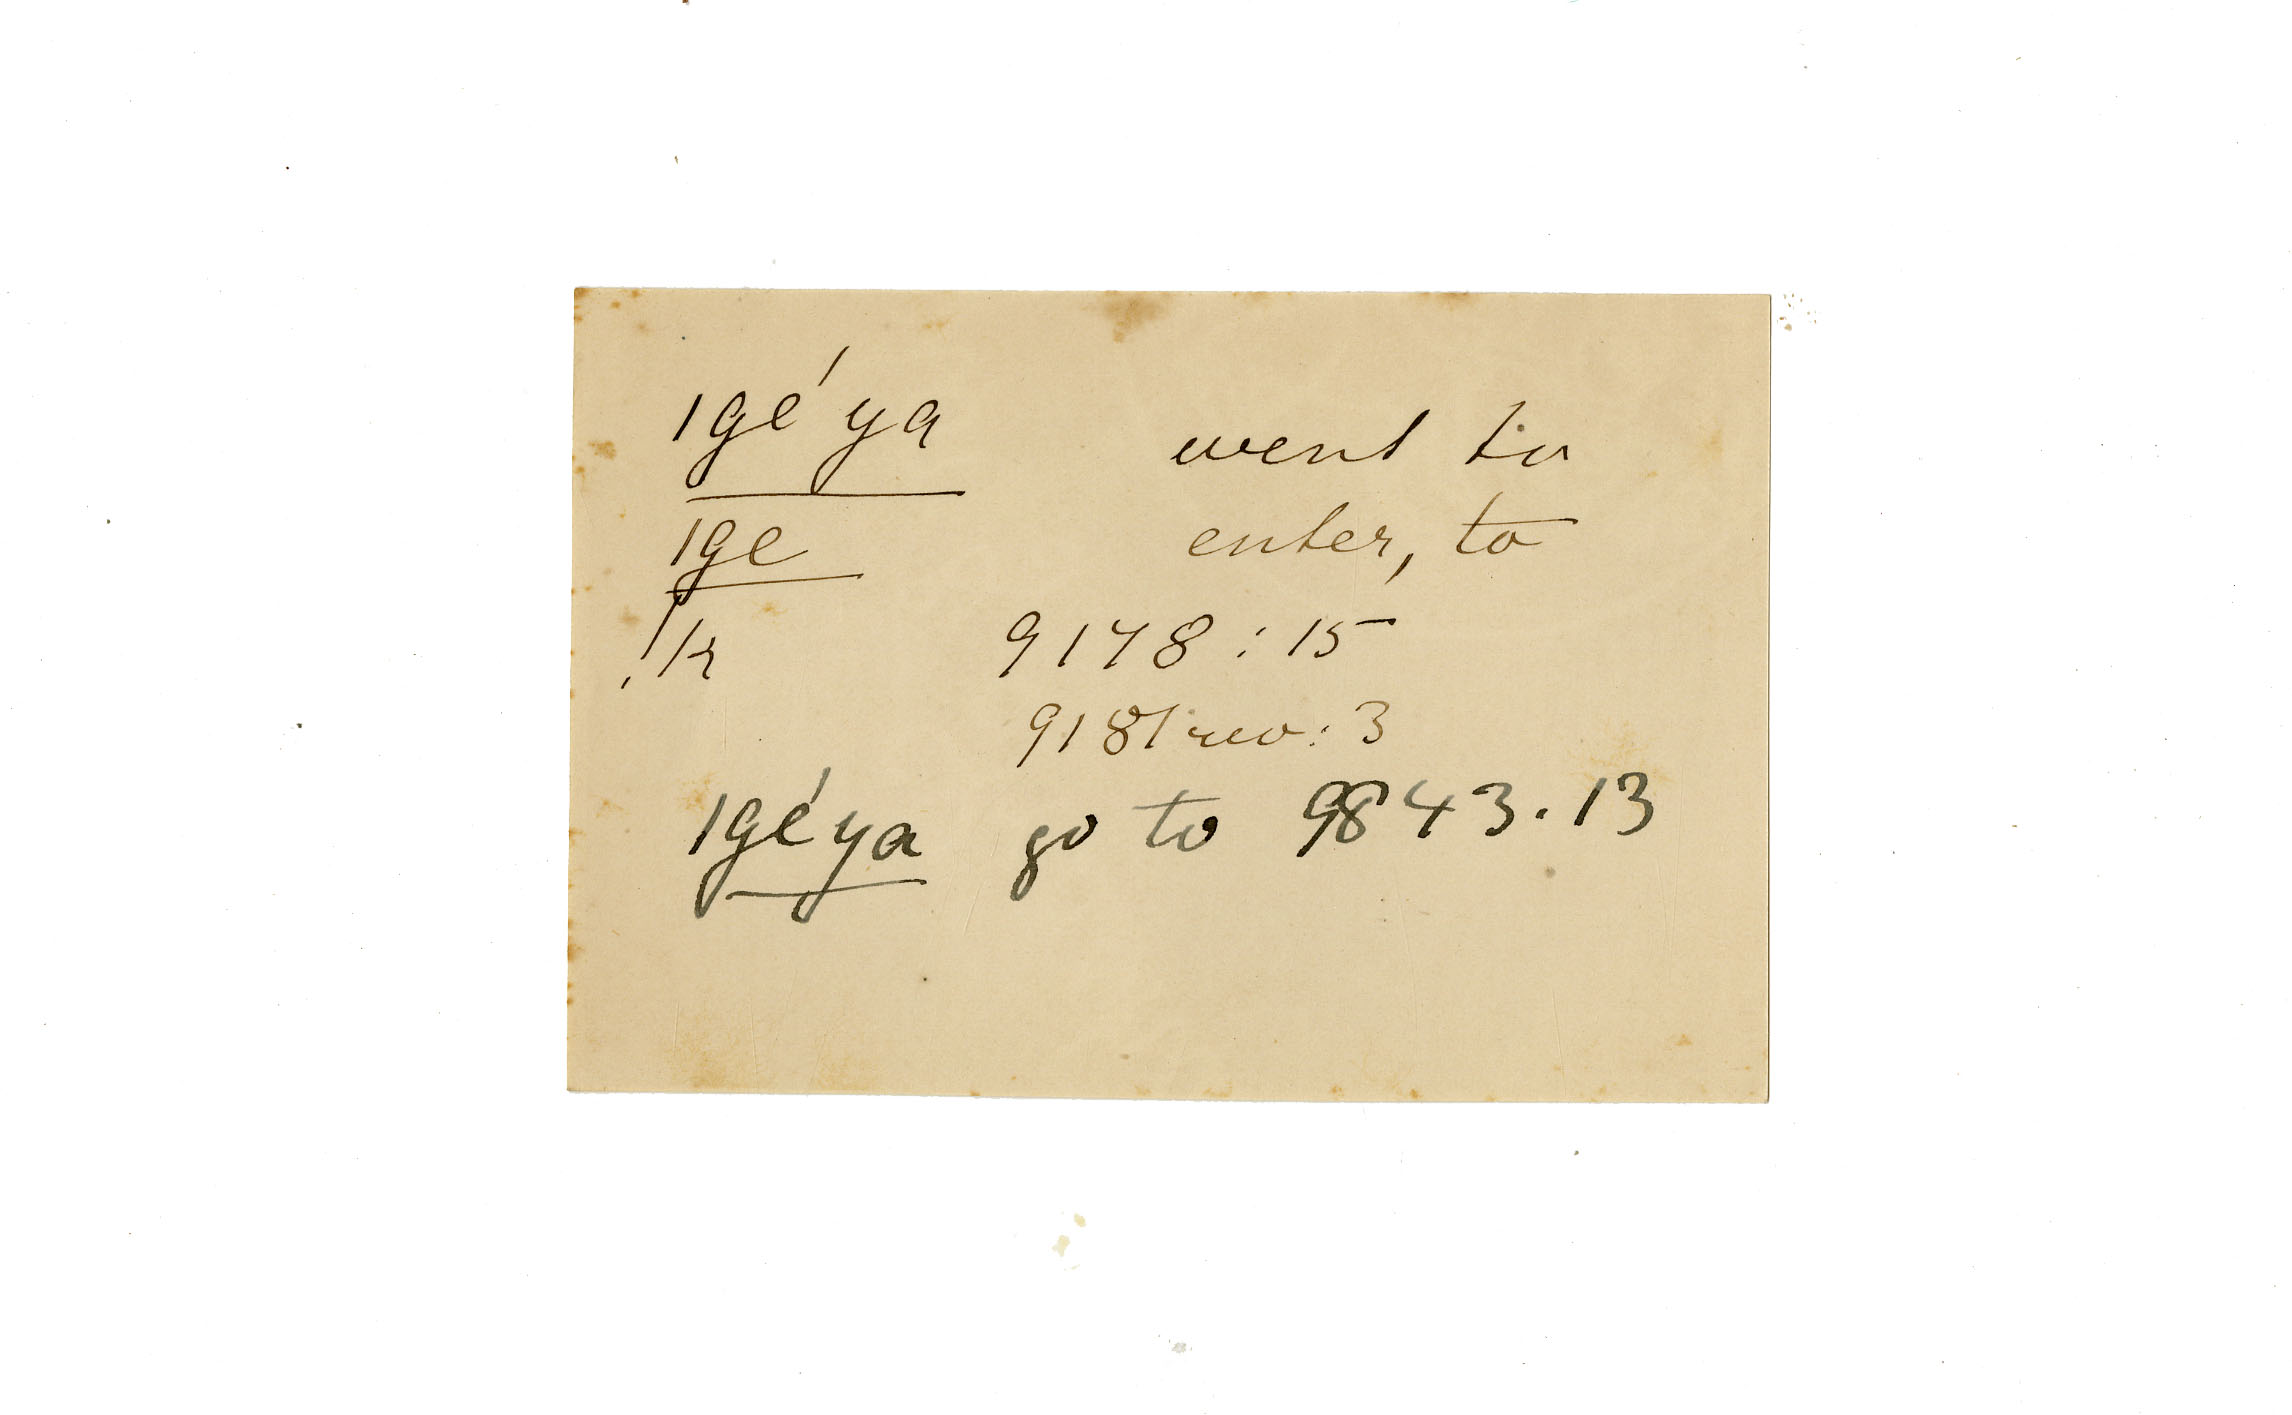 |gé ya went to
|ge enter, to
!k 9178 : 15
9181 rev: 3
|géya go to 9843.13